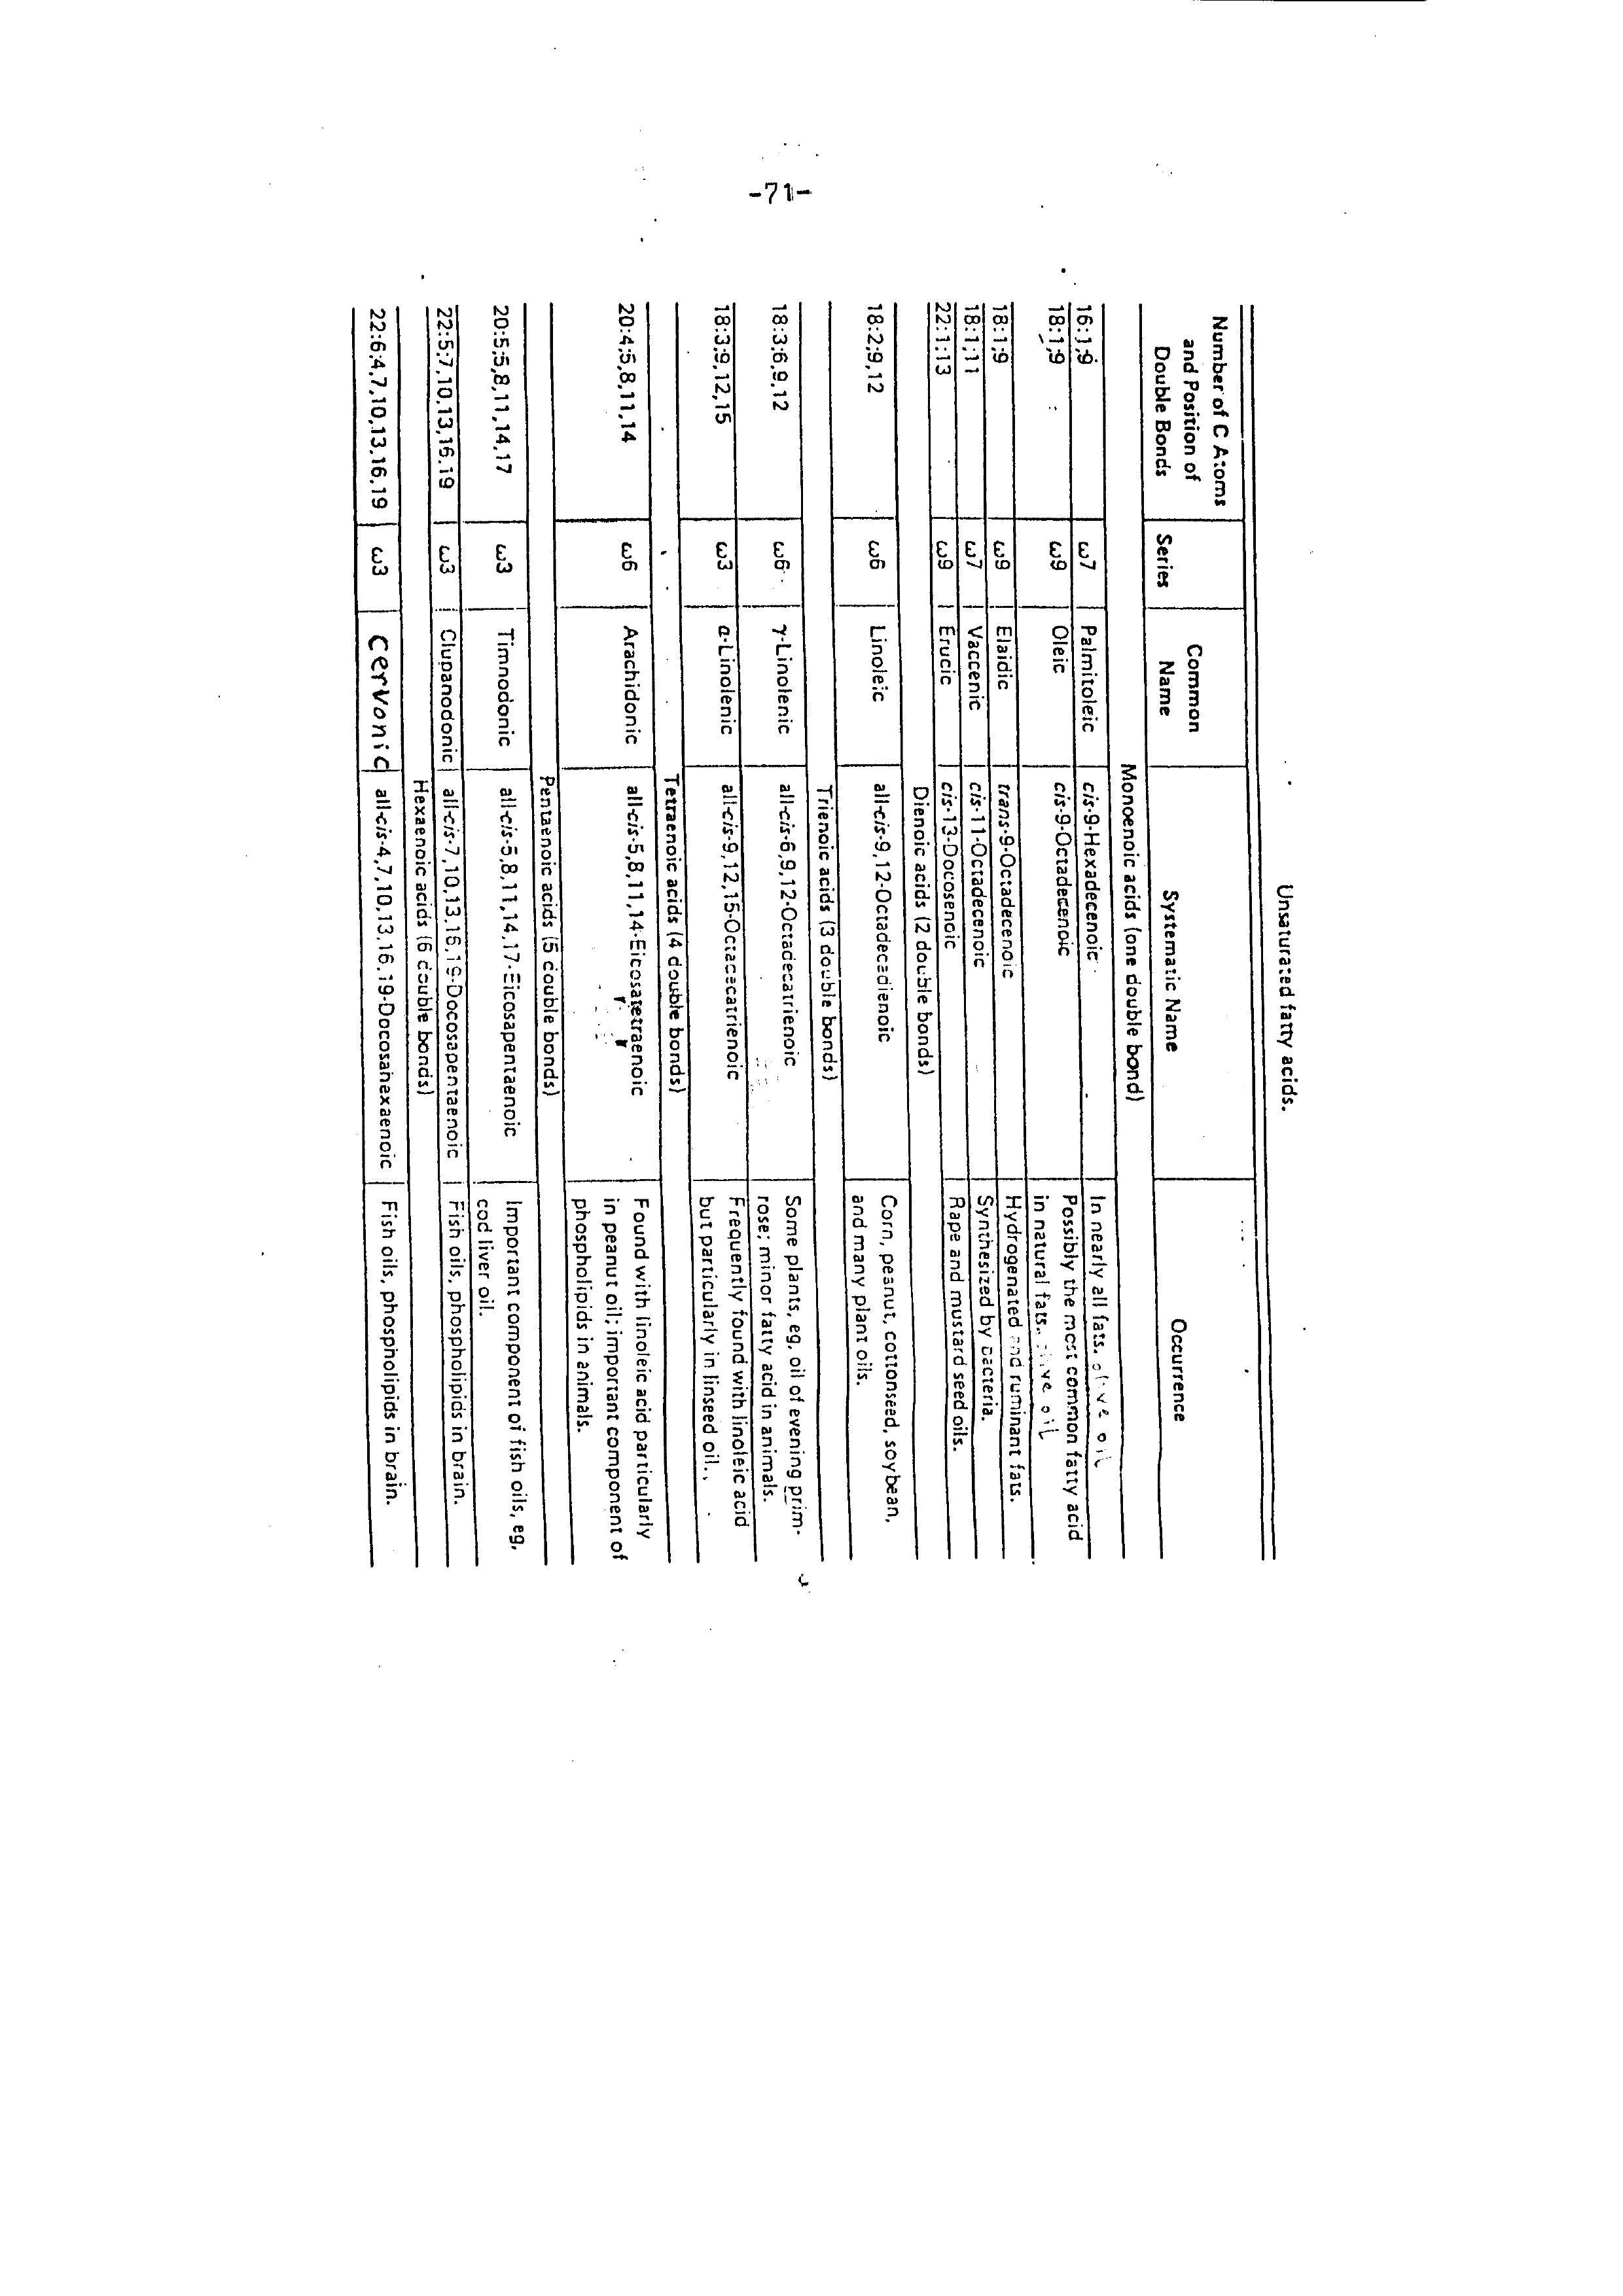 -71-
Unsaturated fatty acids.
Number of C Atoms
and Position of
Double Bonds
Series
Common
Name
Systematic Name
Occurrence
Monoenoic acids (one double bond)
16:1;9 ω7 Palmitoleic cis-9-Hexadecenoic In nearly all fats. olive oil
18:1;9 ω9 Oleic cis-9-Octadecenoic Possibly the most common fatty acid
in natural fats. olive oil
18:1;9 ω9 Elaidic trans-9-Octadecenoic Hydrogenated and ruminant fats.
18:1;11 ω7 Vaccenic cis-11-Octadecenoic Synthesized by bacteria.
22:1:13 ω9 Erucic cis-13-Docosenoic Rape and mustard seed oils.
Dienoic acids (2 double bonds)
18:2;9,12 ω6 Linoleic all-cis-9,12-Octadecadienoic Corn, peanut, cottonseed, soybean,
and many plant oils.
Trienoic acids (3 double bonds)
18:3;6,9,12 ω6 γ-Linolenic all-cis-6,9,12-Octadecatrienoic Some plants, eg, oil of evening prim-
rose; minor fatty acid in animals.
18:3;9,12,15 ω3 α-Linolenic all-cis-9,12,15-Octadecatrienoic Frequently found with linoleic acid
but particularly in linseed oil.
Tetraenoic acids (4 double bonds)
20:4;5,8,11,14 ω6 Arachidonic all-cis-5,8,11,14-Eicosatetraenoic Found with linoleic acid particularly
in peanut oil; important component of
phospholipids in animals.
Pentaenoic acids (5 double bonds)
20:5;5,8,11,14,17 ω3 Timnodonic all-cis-5,8,11,14,17-Eicosapentaenoic Important component of fish oils, eg,
cod liver oil.
22:5;7,10,13,16,19 ω3 Clupanodonic all-cis-7,10,13,16,19-Docosapentaenoic Fish oils, phospholipids in brain.
Hexaenoic acids (6 double bonds)
22:6;4,7,10,13,16,19 ω3 Cervonic all-cis-4,7,10,13,16,19-Docosahexaenoic Fish oils, phospholipids in brain.